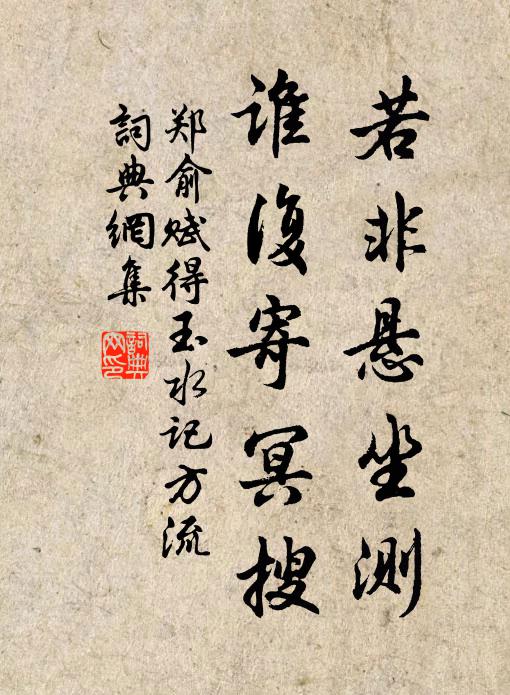 若非悬坐测
谁復寄冥搜
郑俞赋得玉水记方流
詞典網集
詞典網印